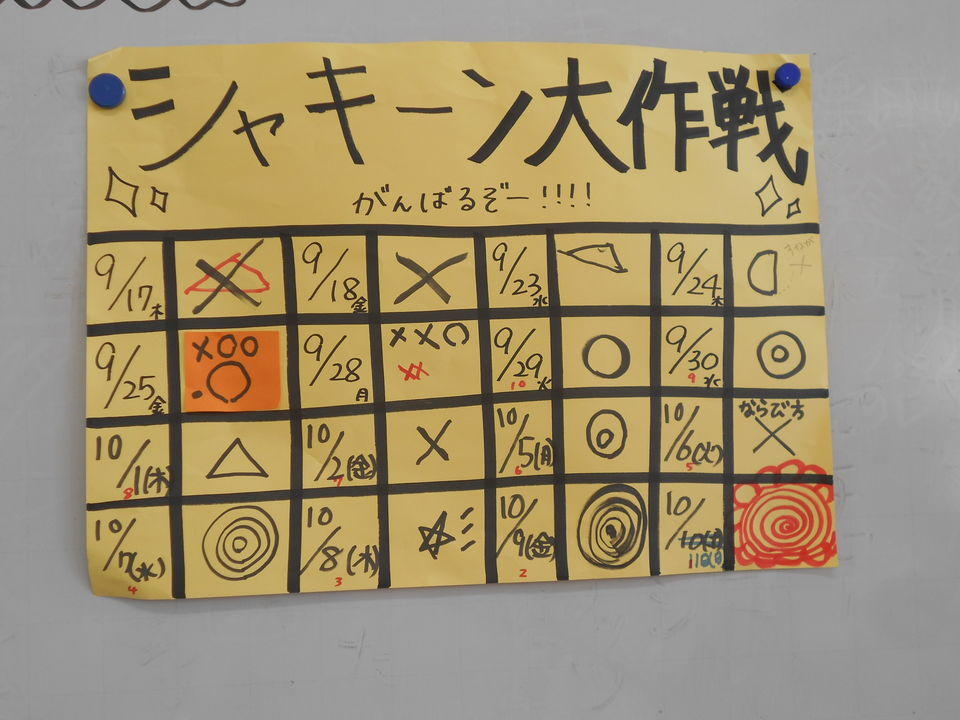 シャキーン大作戦
がんばるぞー!!!!
9/17木 9/18金 9/23水 9/24木
9/25金 ×○○ 9/28月 ××○ 9/29火 10 9/30水 9
10/1(木) 8 10/2(金) 7 10/5(月) 6 10/6(火) 5 ならび方
10/7(水) 4 10/8(木) 3 10/9(金) 2 10/10(月) 11日(日) 1